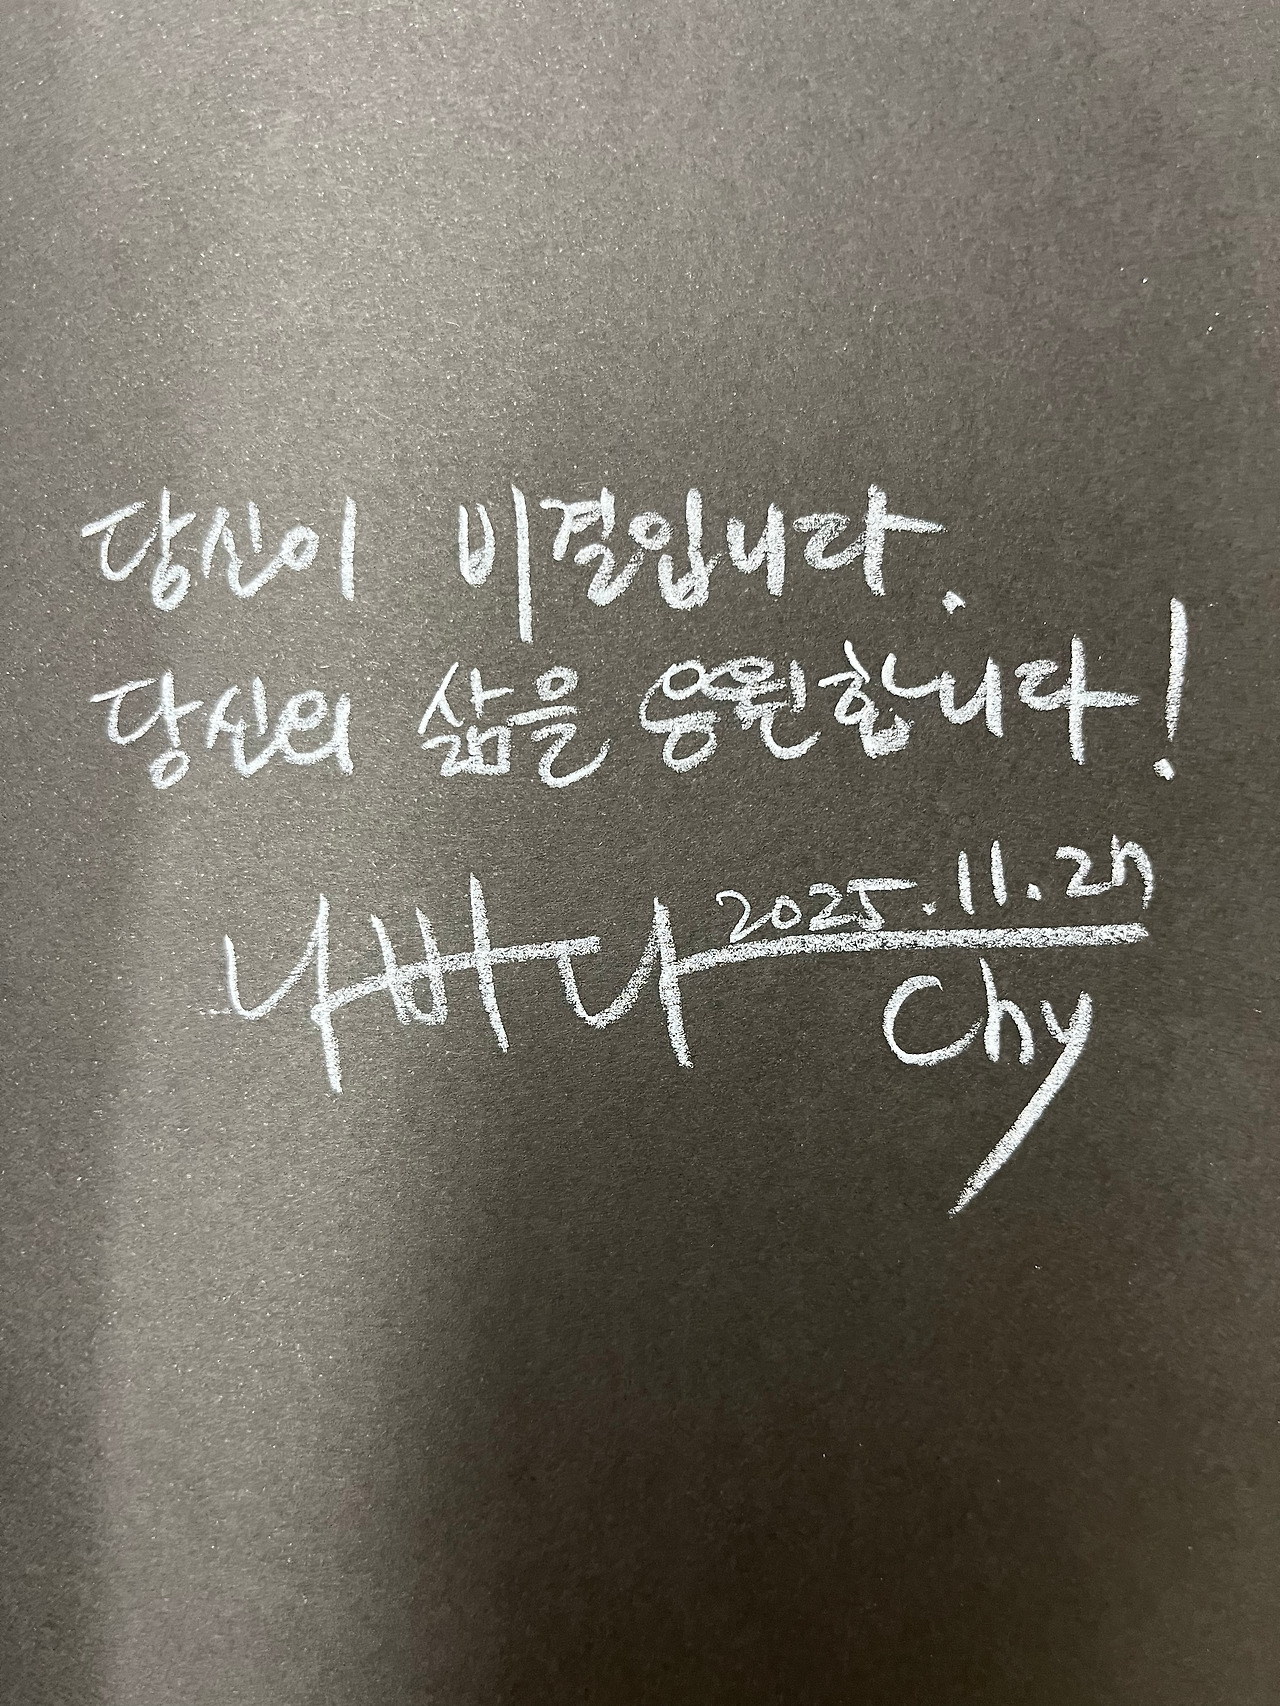 당신이 비결입니다.
당신의 삶을 응원합니다!
나버나 2025.11.27
Chy